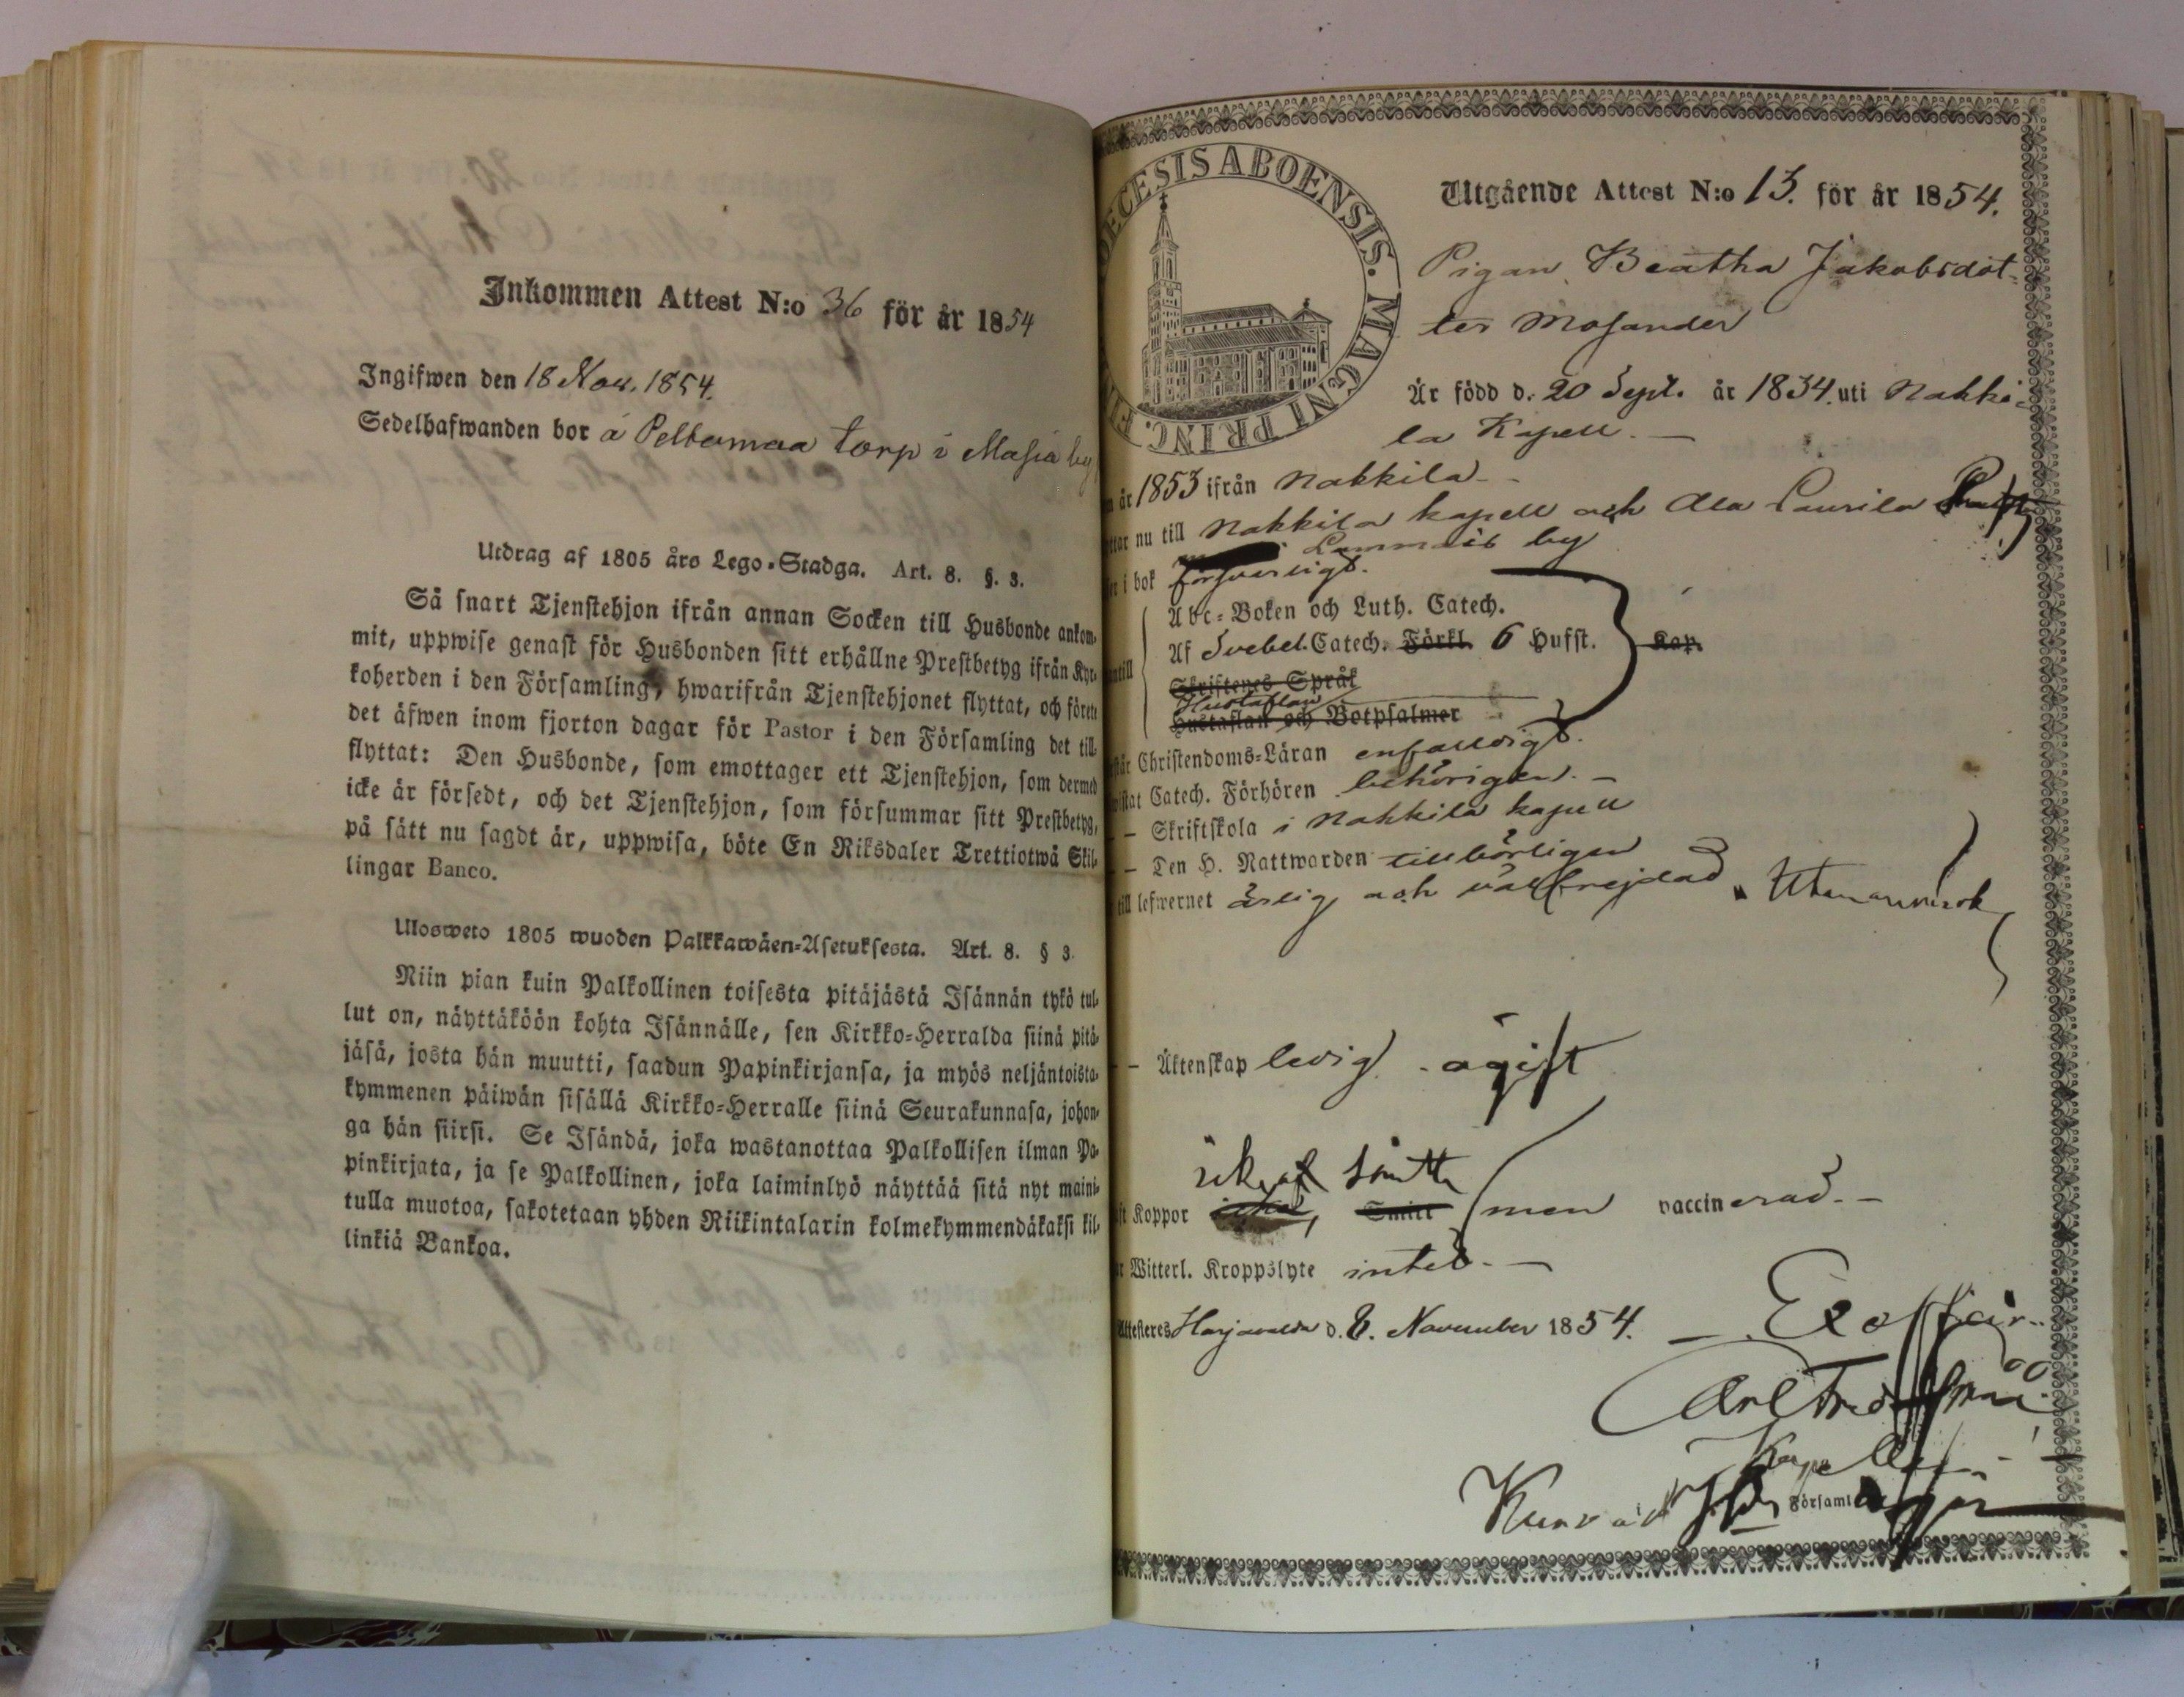 Inkommen Attest N:o 36 för år 1854
Ingifwen den 18 Nov. 1854.
Sedelhafwanden bor å Peltomaa torp i Masia by
Utdrag af 1805 års Lego-Stadga. Art. 8. §. 3.
Så snart Tjenstehjon ifrån annan Socken till Husbonde ankom-
mit, uppwise genast för Husbonden sitt erhållne Prestbetyg ifrån Kyr-
koherden i den Församling, hwarifrån Tjenstehjonet flyttat, och förete
det äfwen inom fjorton dagar för Pastor i den Församling det till-
flyttat: Den Husbonde, som emottager ett Tjenstehjon, som dermed
icke är försedt, och det Tjenstehjon, som försummar sitt Prestbetyg,
på sätt nu sagdt är, uppwisa, böte En Riksdaler Trettiotwå Skil-
lingar Banco.
Ulosweto 1805 wuoden Palkkawäen-Asetuksesta. Art. 8. § 3.
Niin pian kuin Palkollinen toisesta pitäjästä Isännän tykö tul-
lut on, näyttäköön kohta Isännälle, sen Kirkko-Herralda siinä pitä-
jäsä, josta hän muutti, saadun Papinkirjansa, ja myös neljäntoista-
kymmenen päiwän sisällä Kirkko-Herralle siinä Seurakunnasa, johon-
ga hän siirsi. Se Isändä, joka wastanottaa Palkollisen ilman Pa-
pinkirjata, ja se Palkollinen, joka laiminlyö näyttää sitä nyt maini-
tulla muotoa, sakotetaan yhden Riikintalarin kolmekymmendäkaksi kil-
linkiä Bankoa.
ECESIS ABOENSIS. MAGNI PRINC. F
Utgående Attest N:o 13. för år 1854.
Pigan Beatha Jakobsdot-
ter Mosander
Är född d. 20 Sept. år 1834. uti Nakki-
la Kapell. —
år 1853 ifrån Nakkila
nu till Nakkila kapell och Ala Laurila
Lammais by
i bok försvarligt.
Abc-Boken och Luth. Catech.
Af Svebel. Catech. Förkl. 6 Hufst. Kap.
Skriftenes Språk
Hustaflan
Hustaflan och Botpsalmer
Christendoms-Läran enfalldigt.
Catech. Förhören behörigen. —
— Skriftskola i Nakkila kapell
— Den H. Nattwarden tillbörligen
till lefwernet ärlig och välfrejdad. Utan anmärk
— Äktenskap ledig. ogift
Koppor Smitt men vaccinerad. —
Witterl. Kroppslyte intet. —
Attesteras Harjavalda d. 8. November 1854.
Ex officio
Kapell
Församl